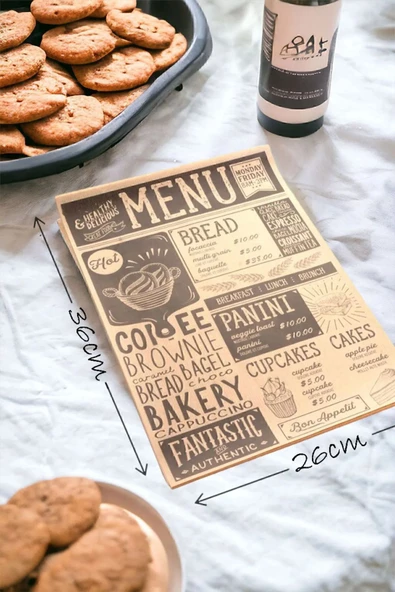 & HEALTHY
DELICIOUS
MENU
MONDAY
FRIDAY
8AM-3PM
Hot
BREAD
focaccia $10.00
multigrain $5.00
baguette $35.00
ESPRESSO
CROISSANT
BREAKFAST | LUNCH | BRUNCH
PANINI
veggie toast $10.00
panini $10.00
COFFEE
BROWNIE
caramel
BREAD BAGEL
choco
BAKERY
CAPPUCCINO
FANTASTIC
AUTHENTIC
CUPCAKES
cupcake
$5.00
cupcake
$5.00
CAKES
apple pie
cheesecake
Bon Appetit
36cm
26cm